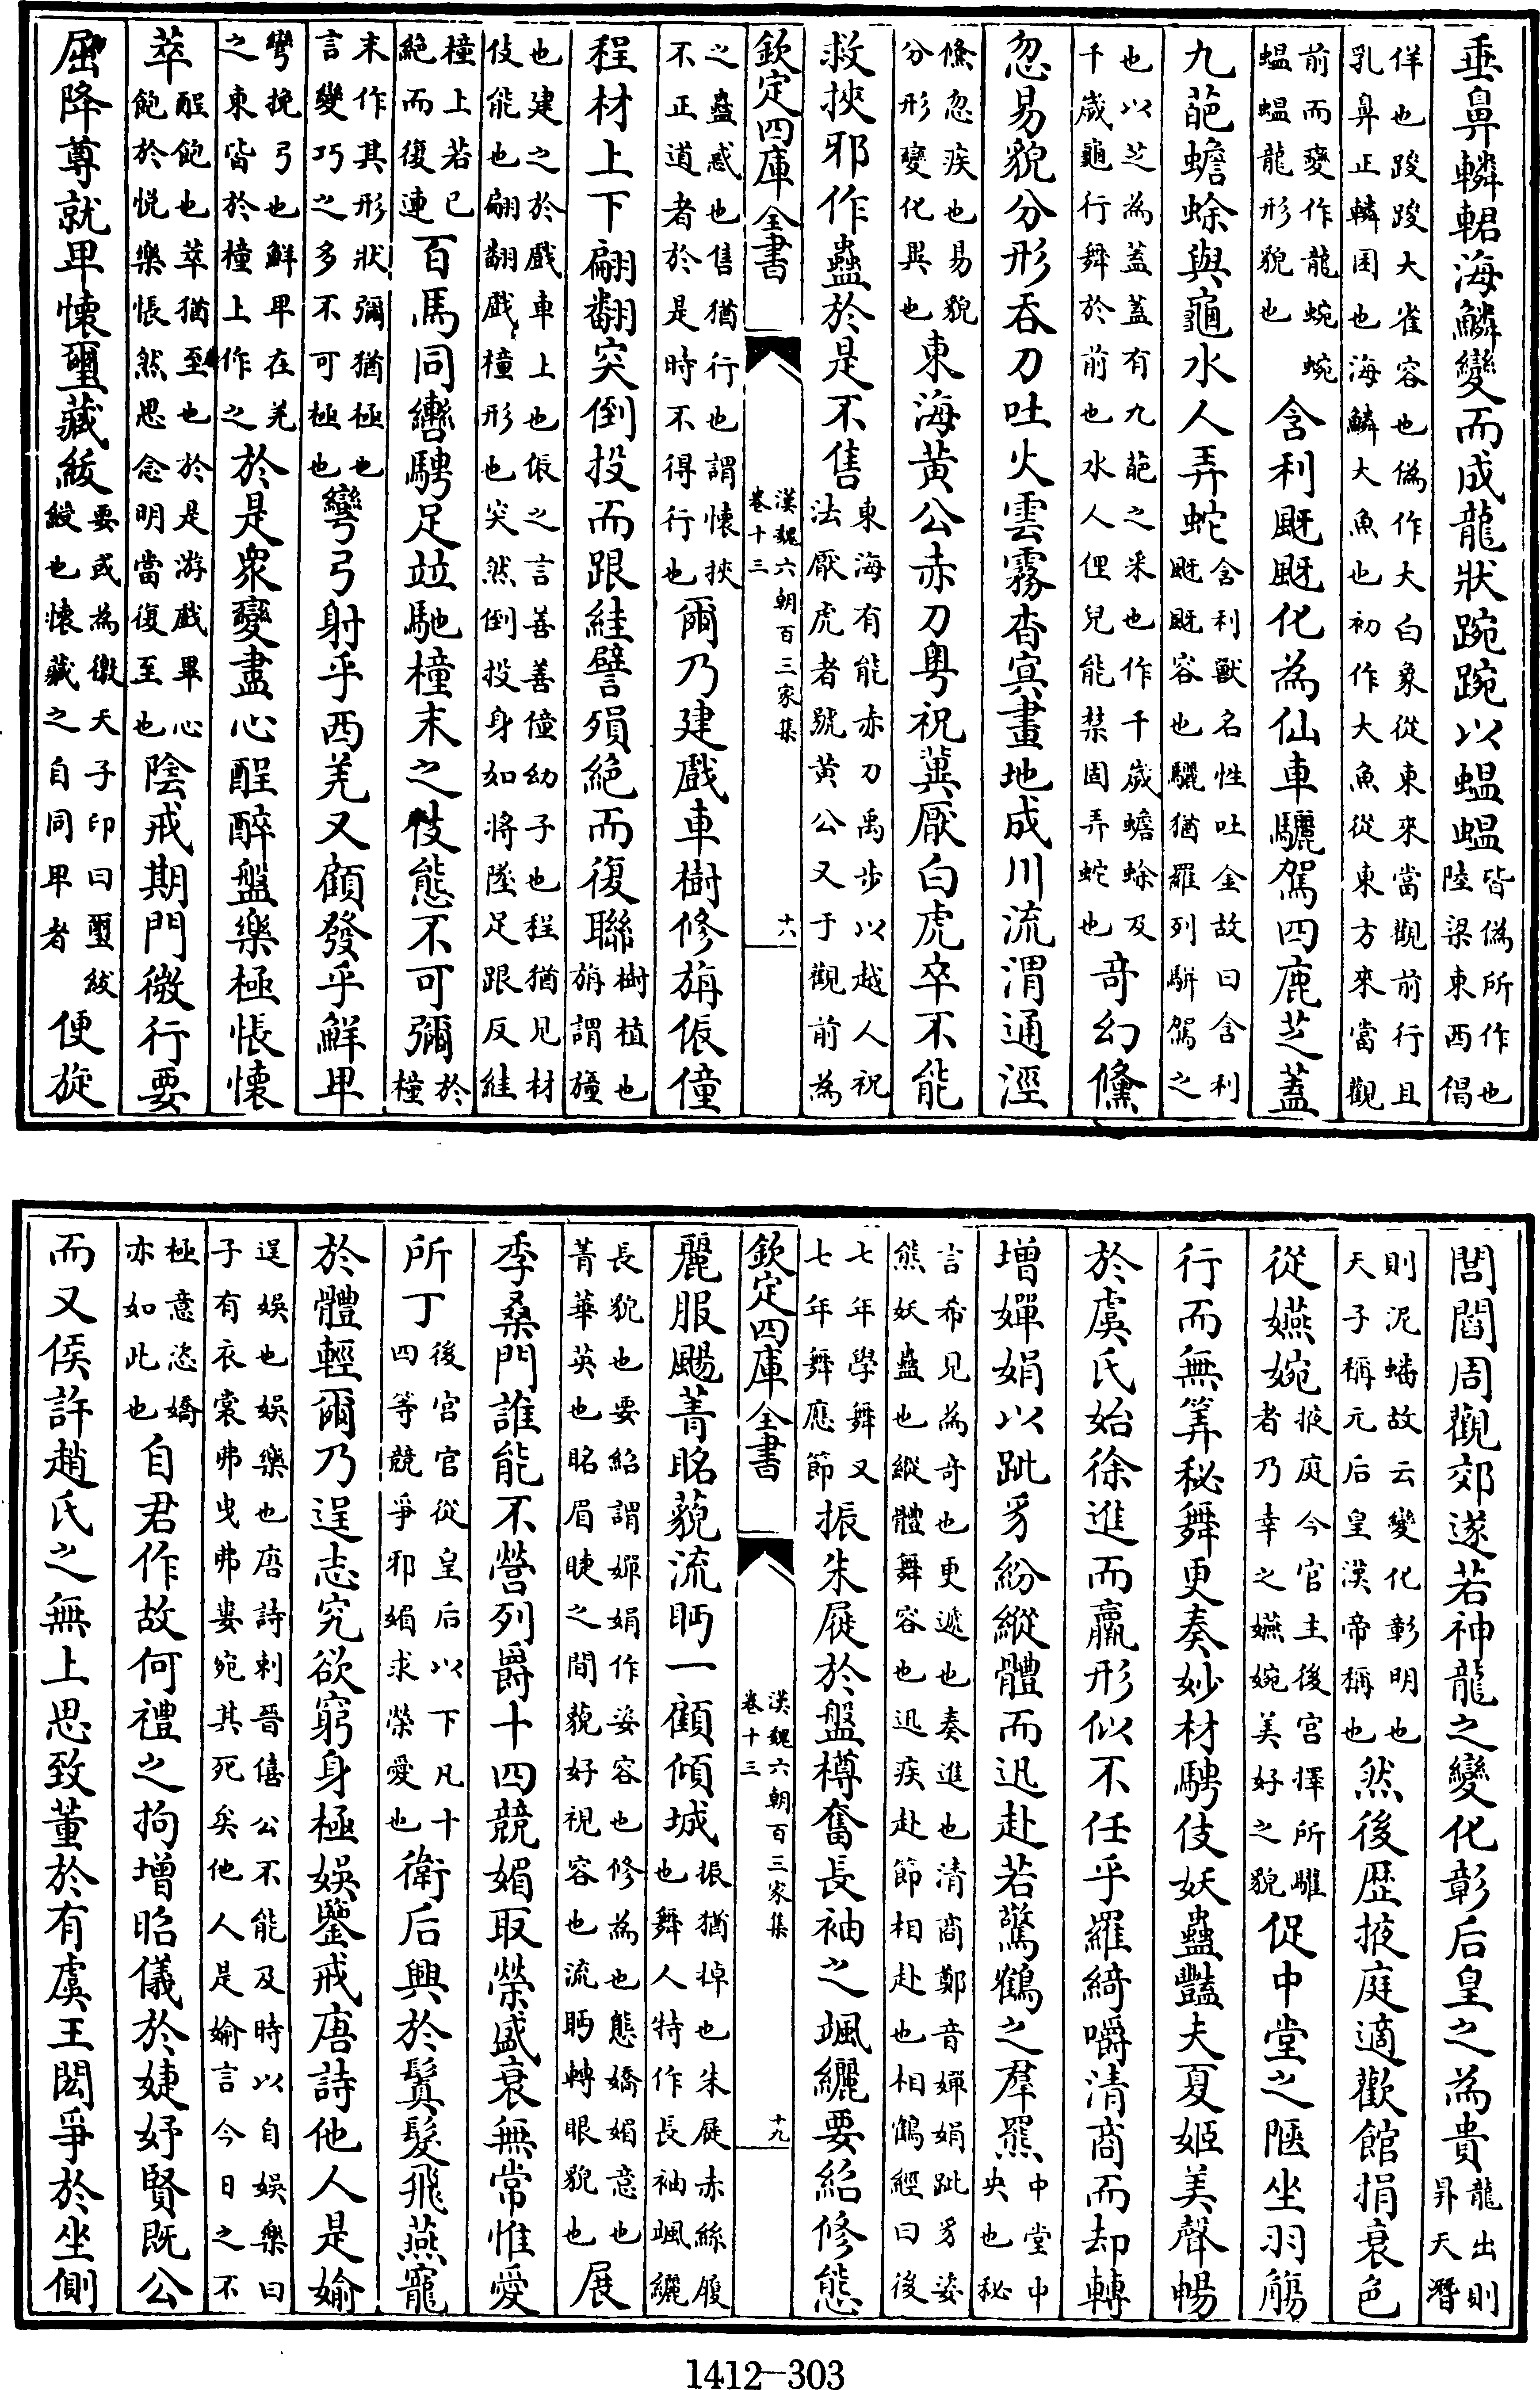 垂鼻轔輑海鱗變而成龍狀踠踠以蝹蝹皆偽所作也陸梁東西倡
佯也踆踆大雀容也偽作大白象從東來當觀前行且乳鼻正轔囷也海鱗大魚也初作大魚從東方來當觀
前而變作龍蜿蜿蝹蝹龍形貌也含利颬颬化為仙車驪駕四鹿芝蓋
九葩蟾蜍與龜水人弄蛇含利獸名性吐金故曰含利颬颬容也驪猶羅列駢駕之
也以芝為蓋蓋有九葩之采也作千歲蟾蜍及千歲龜行舞於前也水人俚兒能禁固弄蛇也奇幻儵
忽易貌分形吞刀吐火雲霧杳冥畫地成川流渭通涇
儵忽疾也易貌分形變化異也東海黃公赤刀粵祝冀厭白虎卒不能
救挾邪作蠱於是不售東海有能赤刀禹步以越人祝法厭虎者號黃公又于觀前為
欽定四庫全書 漢魏六朝百三家集卷十三 十八
之蠱惑也售猶行也謂懷挾不正道者於是時不得行也爾乃建戲車樹修旃侲僮
程材上下翩翻突倒投而跟絓譬殞絕而復聯樹植也旃謂橦
也建之於戲車上也侲之言善善僮幼子也程猶見材伎能也翩翻戲橦形也突然倒投身如將墜足跟反絓
橦上若已絕而復連百馬同轡騁足竝馳橦末之伎態不可彌於橦
末作其形狀彌猶極也言變巧之多不可極也彎弓射乎西羌又顧發乎鮮卑
彎挽弓也鮮卑在羌之東皆於橦上作之於是眾變盡心酲醉盤樂極悵懷
萃酲飽也萃猶至也於是游戲畢心飽於悅樂悵然思念明當復至也陰戒期門微行要
屈降尊就卑懷璽藏紱要或為徼天子印曰璽紱綬也懷藏之自同卑者便旋
閭閻周觀郊遂若神龍之變化彰后皇之為貴龍出則昇天潛
則泥蟠故云變化彰明也天子稱元后皇漢帝稱也然後歷掖庭適歡館捐衰色
從嬿婉掖庭今官主後宮擇所驩者乃幸之嬿婉美好之貌促中堂之陿坐羽觴
行而無筭秘舞更奏妙材騁伎妖蠱豔夫夏姬美聲暢
於虞氏始徐進而羸形似不任乎羅綺嚼清商而却轉
增嬋娟以跐豸紛縱體而迅赴若驚鶴之羣羆中堂中央也秘
言希見為奇也更遞也奏進也清商鄭音嬋娟跐豸姿熊妖蠱也縱體舞容也迅疾赴節相赴也相鶴經曰後
七年學舞又七年舞應節振朱屣於盤樽奮長袖之颯纚要紹修態
欽定四庫全書 漢魏六朝百三家集卷十三 十九
麗服颺菁眳藐流眄一顧傾城振猶掉也朱屣赤絲履也舞人特作長袖颯纚
長貌也要紹謂嬋娟作姿容也修為也態嬌媚意也菁華英也眳眉睫之間藐好視容也流眄轉眼貌也展
季桑門誰能不營列爵十四競媚取榮盛衰無常惟愛
所丁後宮官從皇后以下凡十四等競爭邪媚求榮愛也衛后興於鬒髮飛燕寵
於體輕爾乃逞志究欲窮身極娛鑒戒唐詩他人是媮
逞娛也娛樂也唐詩刺晉僖公不能及時以自娛樂曰子有衣裳弗曳弗婁宛其死矣他人是媮言今日之不
極意恣嬌亦如此也自君作故何禮之拘增昭儀於婕妤賢既公
而又侯許趙氏之無上思致董於有虞王閎爭於坐側
1412—303